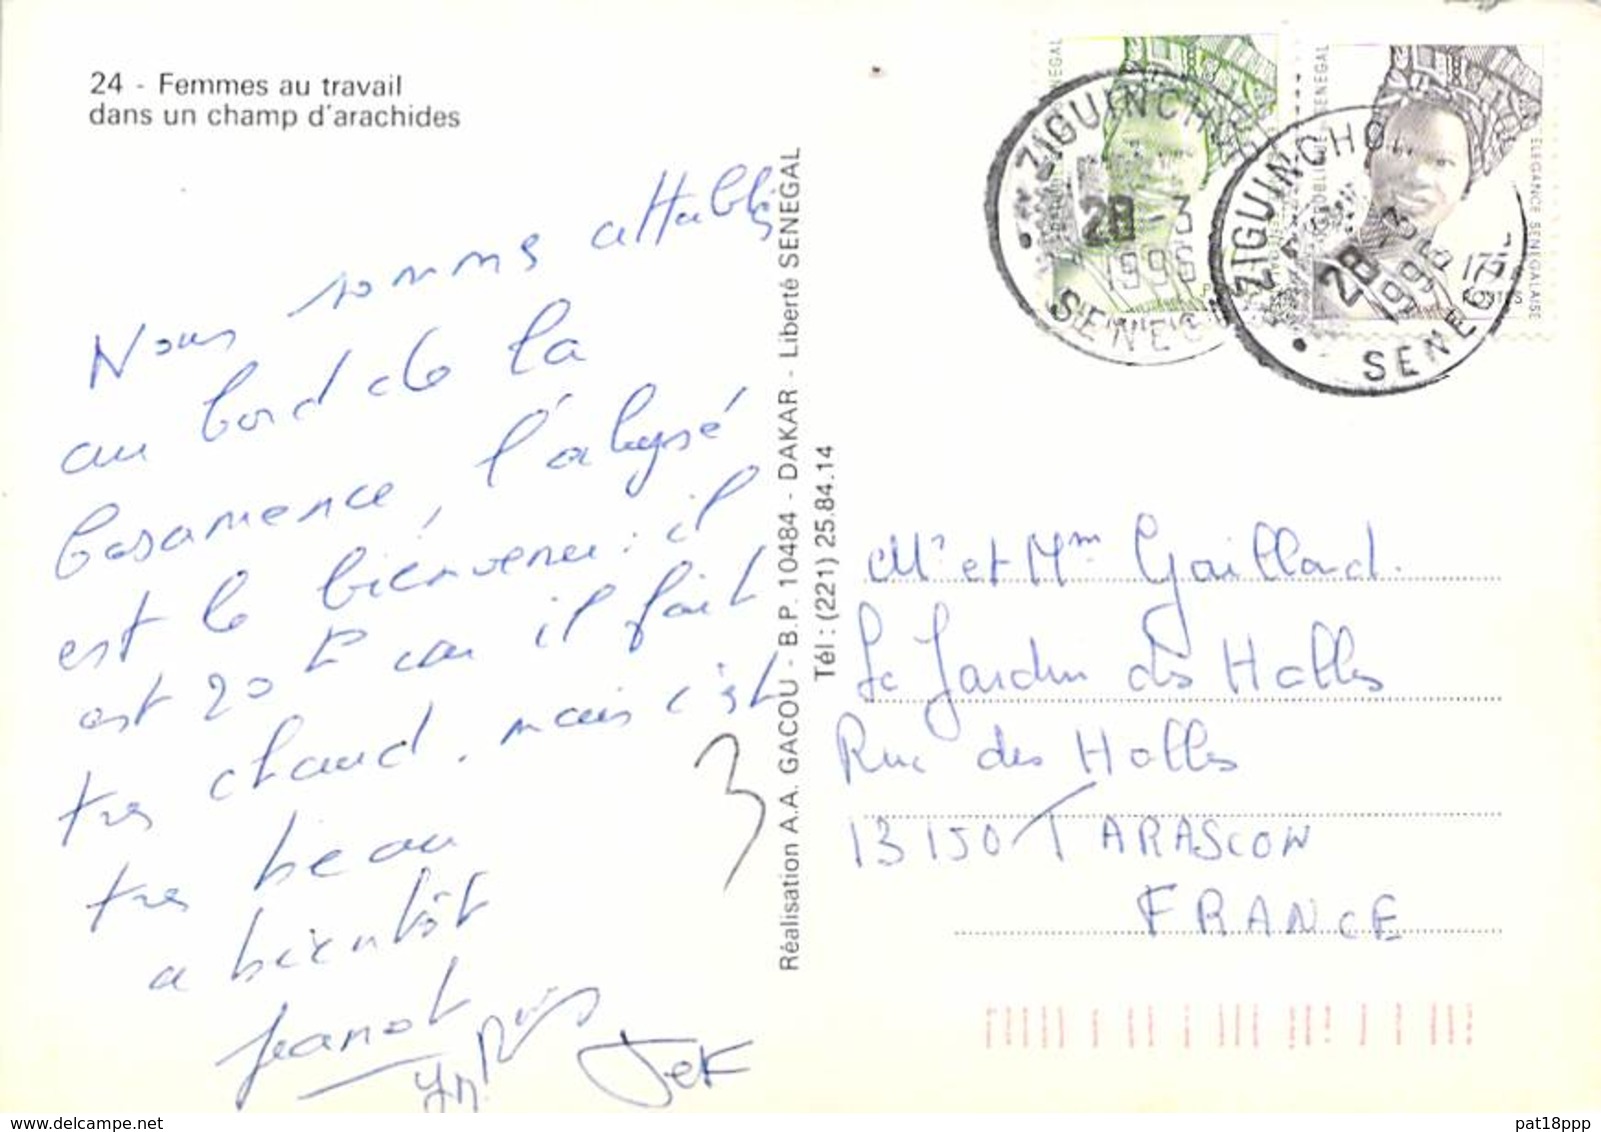 24 - Femmes au travail
dans un champ d'arachides
Nous sommes attablés
au bord de la
Casamence, l'alysé
est le bienvenu : il
est 20 h car il fait
tres chaud, mais c'est
tres beau
a bientôt
Jeanot
JeK
3
Réalisation A.A. GACOU - B.P. 10484 - DAKAR - Liberté SENEGAL
Tél : (221) 25.84.14
ZIGUINCHO
28 -3
1996
SENEG
ZIGUINCHO
28 -3
1996
SENEG
SENEGAL
REPUBLIQUE SENEGAL
ELEGANCE SENEGALAISE
175F
POSTES
Mr et Mme Gaillard.
Le Jardin des Halles
Rue des Halles
13150 TARASCON
FRANCE
pat18ppp